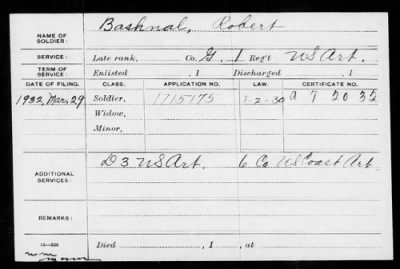 NAME OF SOLDIER: Bashnal, Robert
SERVICE: Late rank, Co. G. 1 Reg't US Art.
TERM OF SERVICE: Enlisted , 1 Discharged , 1
DATE OF FILING. CLASS. APPLICATION NO. LAW. CERTIFICATE NO.
1932, Mar, 29 Soldier, 1715175 T-2-30 a 7 20 32
Widow,
Minor,
ADDITIONAL SERVICES: D 3 US Art. 6 Co US Coast Art.
REMARKS:
Died , 1 , at